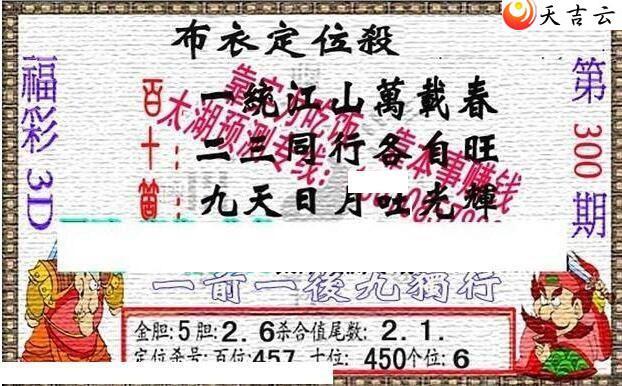 天吉云
布衣定位殺
福彩3D
第300期
百：一統江山萬載春
十：二三同行各自旺
個：九天日月吐光輝
太湖预测专线：
靠本事赚钱
一前一後九獨行
金胆:5胆:2.6杀合值尾数:2.1.
定位杀号:百位:457 十位:450个位:6